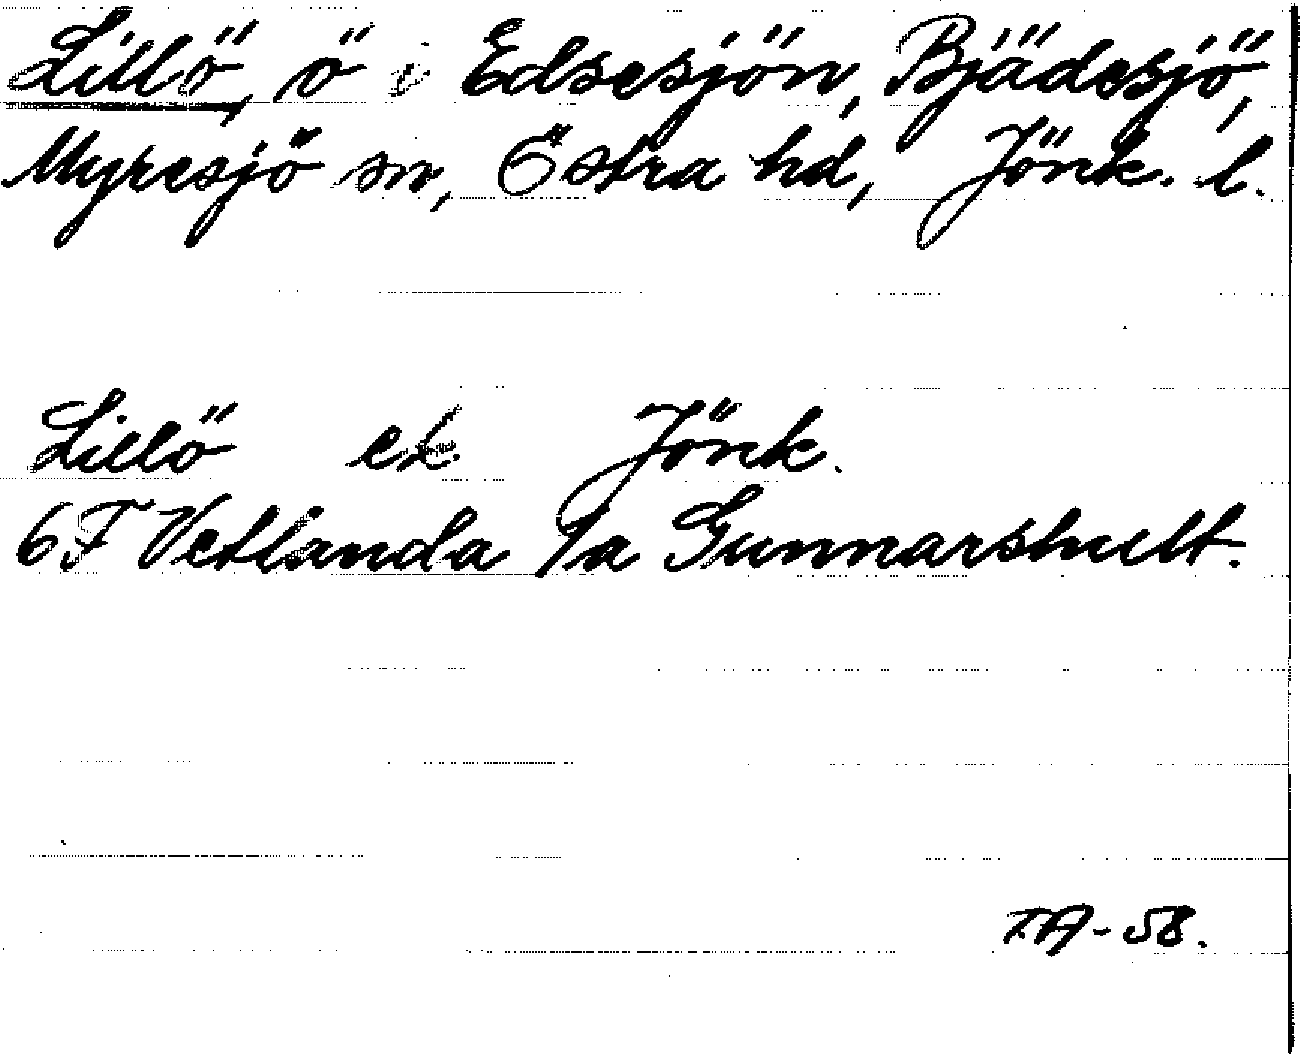 Lillö, ö i Edsesjön, Bjädesjö,
Myresjö sn, Östra hd, Jönk. l.
Lillö ek. Jönk.
6F Vetlanda 1a Gunnarshult.
T.A-58.